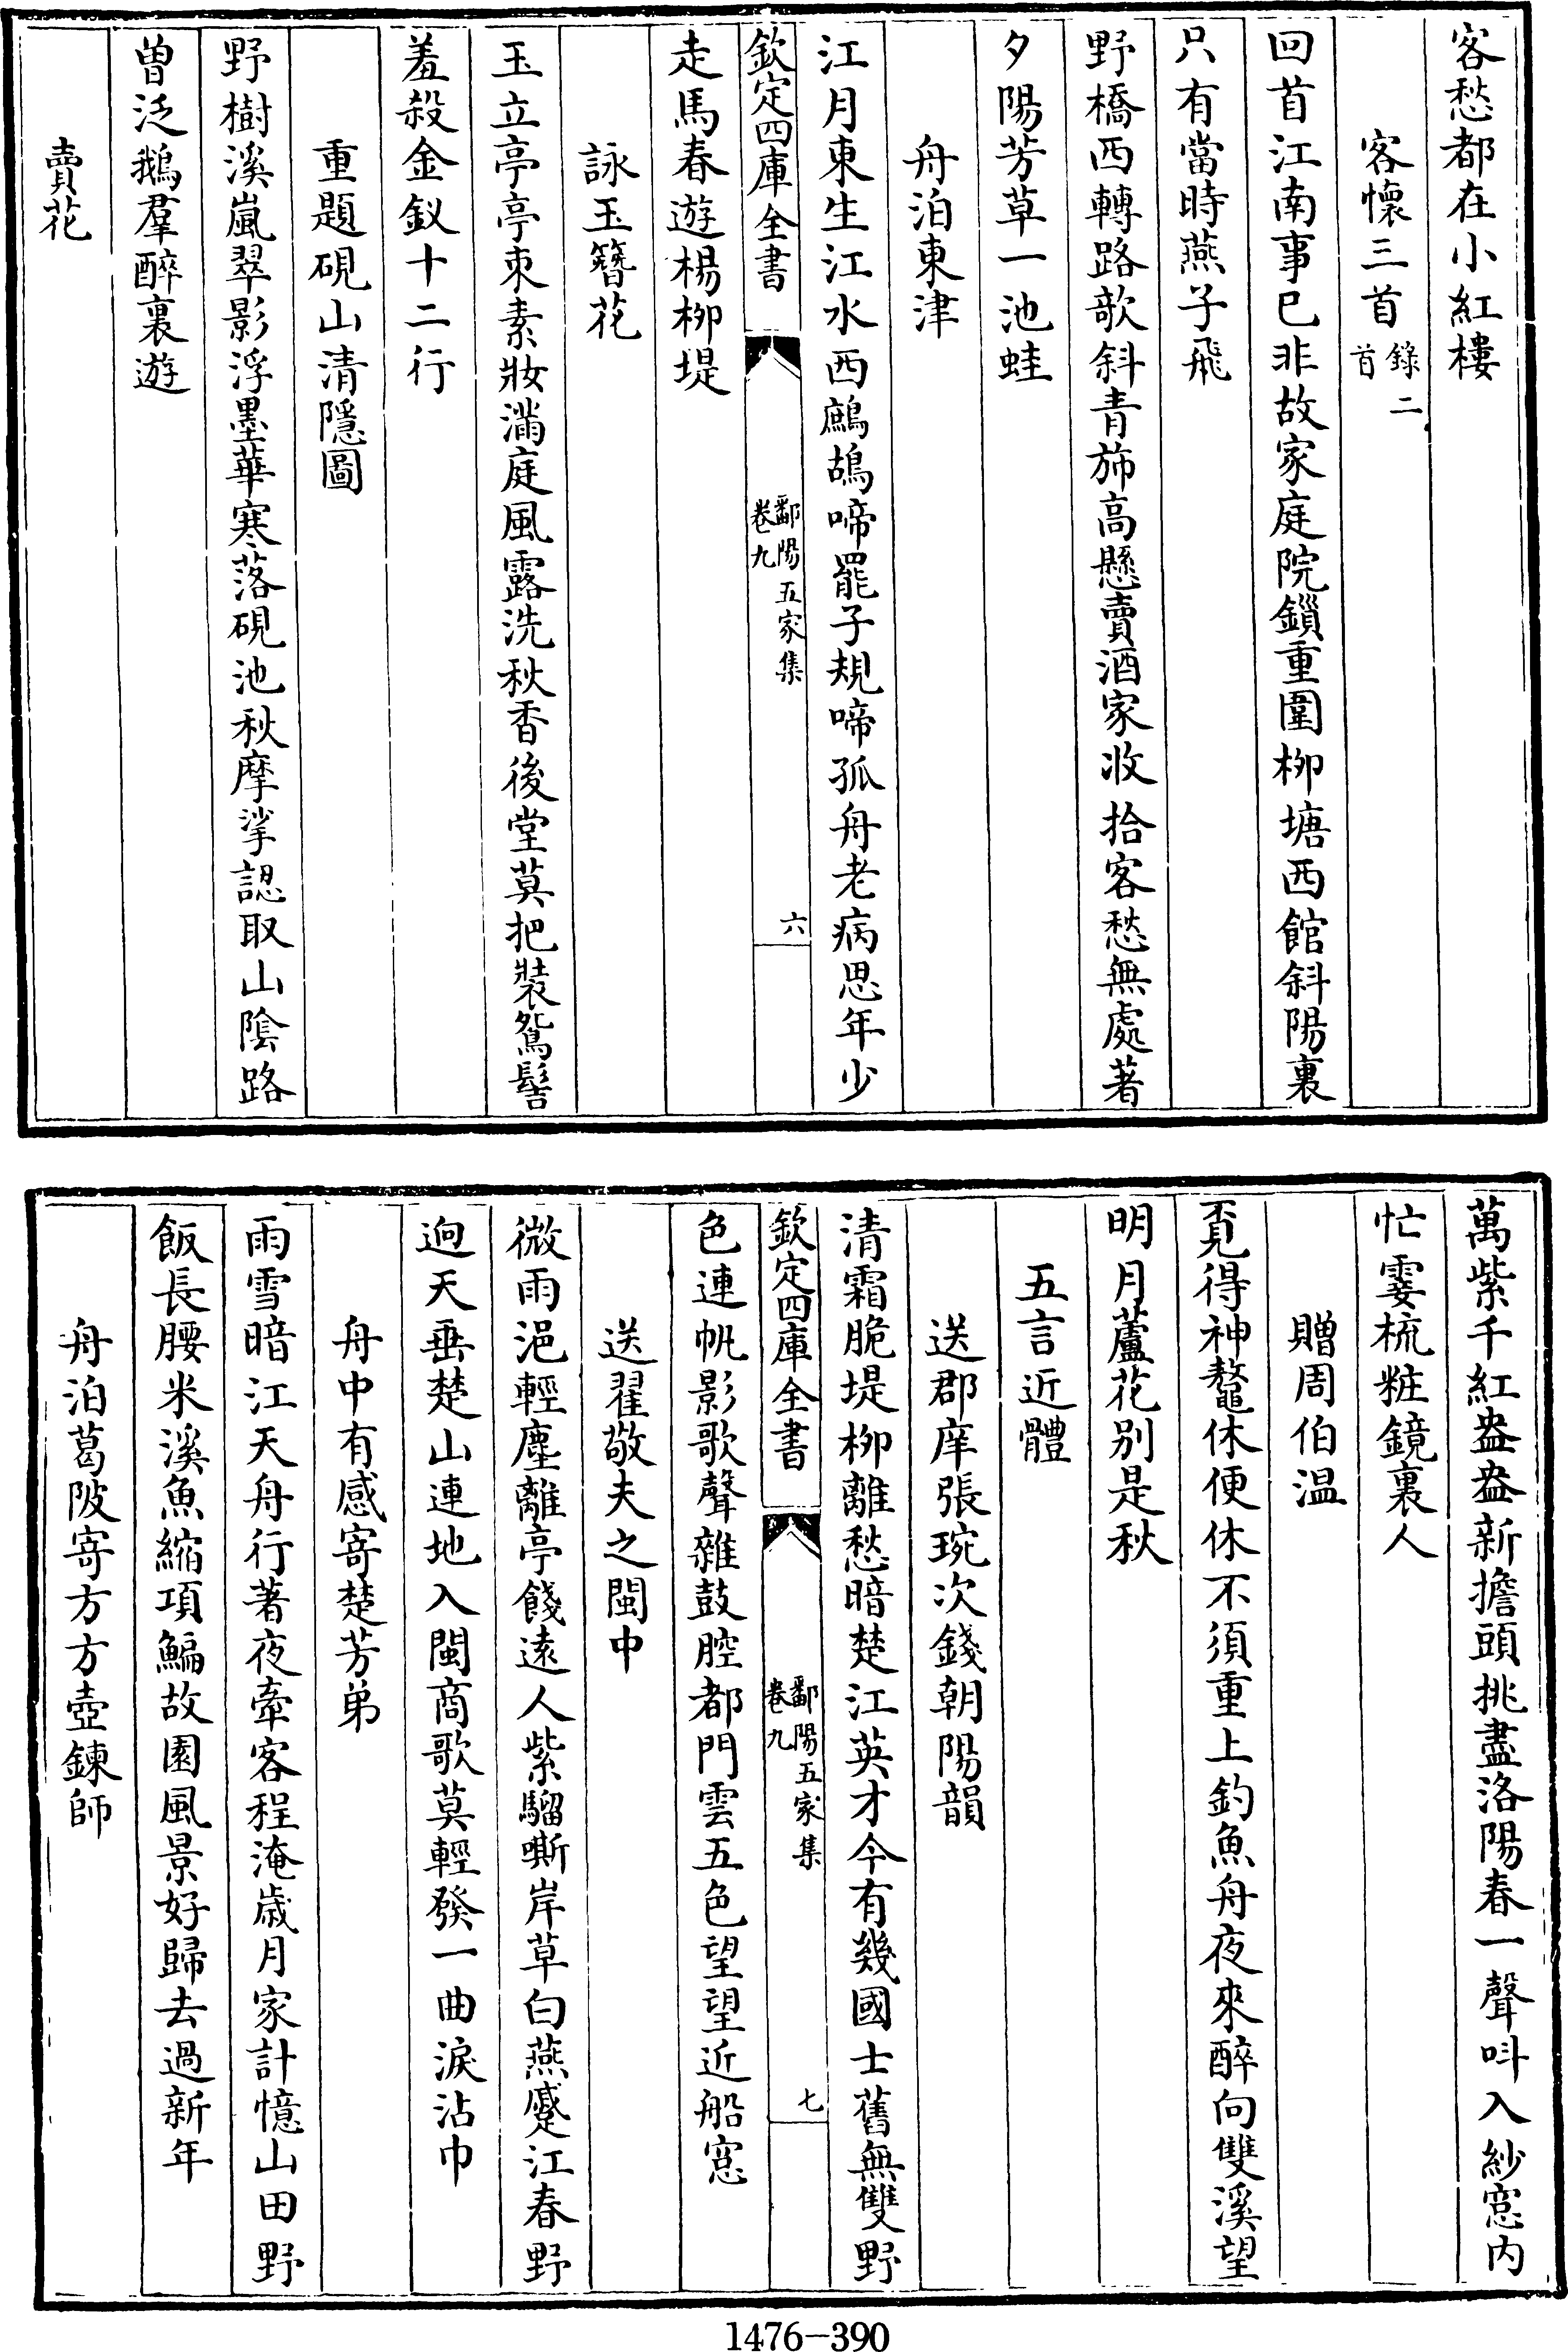 客愁都在小紅樓
客懷三首錄二首
回首江南事已非故家庭院鎻重圍柳塘西館斜陽裏
只有當時燕子飛
野橋西轉路歌斜青斾高懸賣酒家收拾客愁無處著
夕陽芳草一池蛙
舟泊東津
江月東生江水西鷓鴣啼罷子規啼孤舟老病思年少
欽定四庫全書 鄱陽五家集 卷九 六
走馬春遊楊柳堤
詠玉簪花
玉立亭亭朿素妝滿庭風露洗秋香後堂莫把裝鴛髻
羞殺金釵十二行
重題硯山清隱圖
野樹溪嵐翠影浮墨華寒落硯池秋摩挲認取山陰路
曾泛鵝羣醉裏遊
賣花
萬紫千紅盎盎新擔頭挑盡洛陽春一聲呌入紗窓内
忙霎梳粧鏡裏人
贈周伯温
覓得神鼇休便休不須重上釣魚舟夜來醉向雙溪望
明月蘆花别是秋
五言近體
送郡庠張琬次錢朝陽韻
清霜脆堤柳離愁暗楚江英才今有幾國士舊無雙野
欽定四庫全書 鄱陽五家集 卷九 七
色連帆影歌聲雜鼓腔都門雲五色望望近船窓
送翟敬夫之閩中
微雨浥輕塵離亭餞逺人紫騮嘶岸草白燕蹙江春野
逈天垂楚山連地入閩商歌莫輕發一曲淚沾巾
舟中有感寄楚芳弟
雨雪暗江天舟行著夜牽客程淹歳月家計憶山田野
飯長腰米溪魚縮項鯿故園風景好歸去過新年
舟泊葛陂寄方方壺鍊師
1476-390